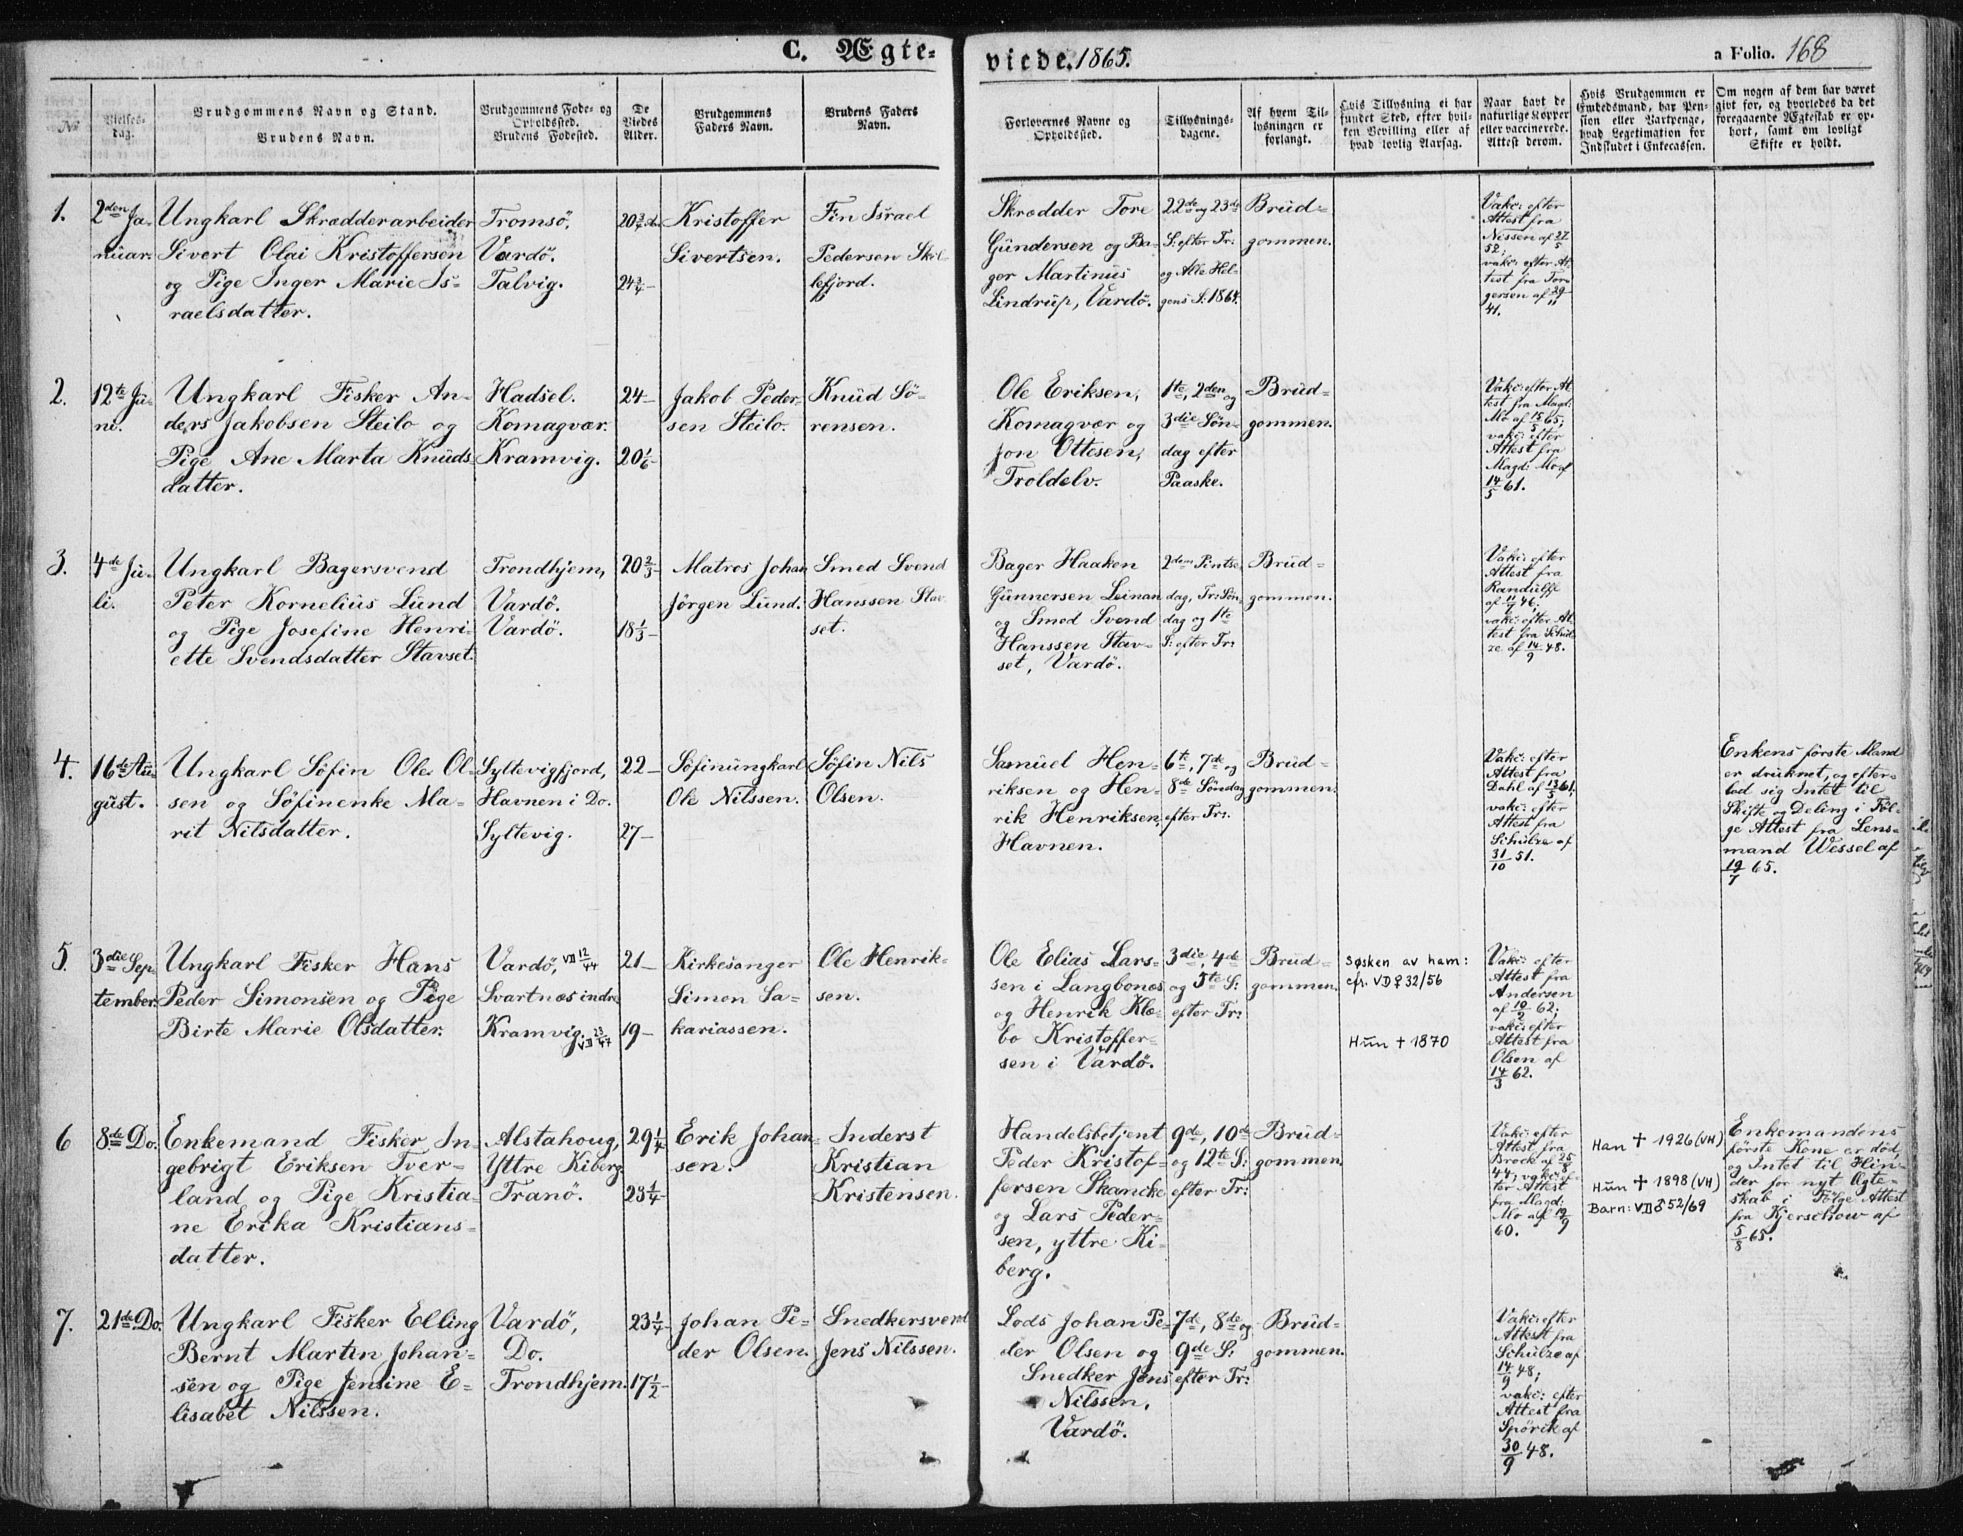 C. Ægteviede. 1865.
a Folio. 168
No
Vielses-
dag.
Brudgommens Navn og Stand.
Brudens Navn.
Brudgommens Føde- og
Opholdssted.
Brudens Fødested.
De
Viedes
Alder.
Brudgommens
Faders Navn.
Brudens Faders
Navn.
Forlovernes Navne og
Opholdssted.
Tillysnings-
dagene.
Af hvem Til-
lysningen er
forlangt.
Hvis Tillysning ei har
fundet Sted, efter hvil-
ken Bevilling eller af
hvad lovlig Aarsag.
Naar havt de
naturlige Kopper
eller vaccinerede.
Attest derom.
Hvis Brudgommen er
Embedsmand, har Pen-
sion eller Vartpenge,
hvad Legitimation for
Indskudet i Enkecassen.
Om nogen af dem har været
givt før, og hvorledes da det
foregaaende Ægteskab er op-
hørt, samt om lovligt
Skifte er holdt.
1.
2den Ja-
nuar.
Ungkarl Skrædderarbeider
Sivert Olai Kristoffersen
og Pige Inger Marie Is-
raelsdatter.
Tromsö,
Vardö.
Talvig.
20 3/4
24 3/4 -
Kristoffer
Sivertsen.
Fin Israel
Pedersen Skil-
lefjord.
Skrædder Tore
Gundersen og Ba-
ger Martinus
Lindrup, Vardö.
22de og 23de
S: efter Tr:
og Alle Hel-
gens S: 1864.
Brud-
gommen.
Vakc: efter
Attest fra
Nissen af 27/5
52,
vakc: efter At-
test fra Tor-
gersen af 29/11
41.
2.
12te Ju-
ni.
Ungkarl Fisker An-
ders Jakobsen Steilo og
Pige Ane Marta Knuds-
datter.
Hadsel.
Komagvær.
Kramvig.
24 -
20 1/6 -
Jakob Peder-
sen Steilo.
Knud Sö-
rensen.
Ole Eriksen,
Komagvær og
Jon Ottesen,
Troldelv.
1te, 2den og
3die Sön-
dag efter
Paaske.
Brud-
gommen.
Vakc: efter At-
test fra Magd:
Mo af 15/5 65;
vakc: efter
Attest fra
Magd: Mo af
14/5 61.
3.
4de Ju-
li.
Ungkarl Bagersvend
Peter Kornelius Lund
og Pige Josefine Henri-
ette Svendsdatter Stavset.
Trondhjem,
Vardö.
Vardö.
20 2/3 -
18 1/3 -
Matros Johan
Jörgen Lund.
Smed Svend
Hanssen Stav-
set.
Bager Haaken
Gunnersen Leinan
og Smed Svend
Hanssen Stav-
set, Vardö.
2den Pintse-
dag, Tr: Sön-
dag og 1te
S: efter Tr:
Brud-
gommen.
Vakc: efter
Attest fra
Randulff
af 11/6 46;
vakc: efter At-
test fra Schul-
ze af 14/9 48.
4.
16de Au-
gust.
Ungkarl Söfin Ole Ol-
sen og Söfinenke Ma-
rit Nilsdatter.
Syltevigfjord,
Havnen i Do.
Syltevig.
22 -
27 -
Söfinungkarl
Ole Nilssen.
Söfin Nils
Olsen.
Samuel Hen-
riksen og Hen-
rik Henriksen,
Havnen.
6te, 7de og
8de Söndag
efter Tr:
Brud-
gommen.
Vakc: efter
Attest fra
Dahl af 12/5 61,
vakc: efter
Attest fra
Schulze af
31/10 51.
Enkens förste Mand
er druknet, og efter-
lod sig Intet til
Skifte og Deling i Föl-
ge Attest fra Lens-
mand Wessel af
19/7 65.
5.
3die Sep-
tember.
Ungkarl Fisker Hans
Peder Simonsen og Pige
Birte Marie Olsdatter.
Vardö, VD 12/44
Svartnæs indre
Kramvig. VD 23/47
21 -
19 -
Kirkesanger
Simon Sa-
kariassen.
Ole Henrik-
sen.
Ole Elias Lars-
sen i Langbonæs
og Henrik Klæ-
bo Kristoffer-
sen i Vardö.
3die, 4de
og 5te S:
efter Tr:
Brud-
gommen.
Søsken av ham:
cfr. VD♀32/56
Hun † 1870
Vakc: efter
Attest fra
Andersen
af 19/2 62;
vakc: efter
Attest fra
Olsen af
14/3 62.
6
8de Do.
Enkemand Fisker In-
gebrigt Eriksen Tver-
land og Pige Kristia-
ne Erika Kristians-
datter.
Alstahoug,
Yttre Kiberg
Tranö.
29 1/4
23 1/4 -
Erik Johan-
sen.
Inderst
Kristian
Kristensen.
Handelsbetjent
Peder Kristof-
fersen Skancke
og Lars Peder-
sen, yttre Ki-
berg.
9de, 10de
og 12te S:
efter Tr:
Brud-
gommen.
Vakc: efter
Attest fra
Brock af 25/8
44, vakc: ef-
ter Attest
fra Magd:
Mo af 19/9
60.
Han † 1926 (VH)
Hun † 1898 (VH)
Barn: VD♂52/69
Enkemandens
förste Kone er död,
og Intet til Hin-
der for nyt Ægte-
skab i Fölge Attest
fra Kjerschow af
5/8 65.
7.
21de Do.
Ungkarl Fisker Elling
Bernt Martin Johan-
sen og Pige Jensine E-
lisabet Nilssen.
Vardö,
Do.
Trondhjem.
23 1/4 -
17 1/2 -
Johan Pe-
der Olsen.
Snedkersvend
Jens Nilssen.
Lods Johan Pe-
der Olsen og
Snedker Jens
Nilssen,
Vardö.
7de, 8de og
9de S:
efter Tr:
Brud-
gommen.
Vakc: efter
Attest fra
Schulze af
14/9 48;
vakc: efter
Attest fra
Spörck af
30/9 48.